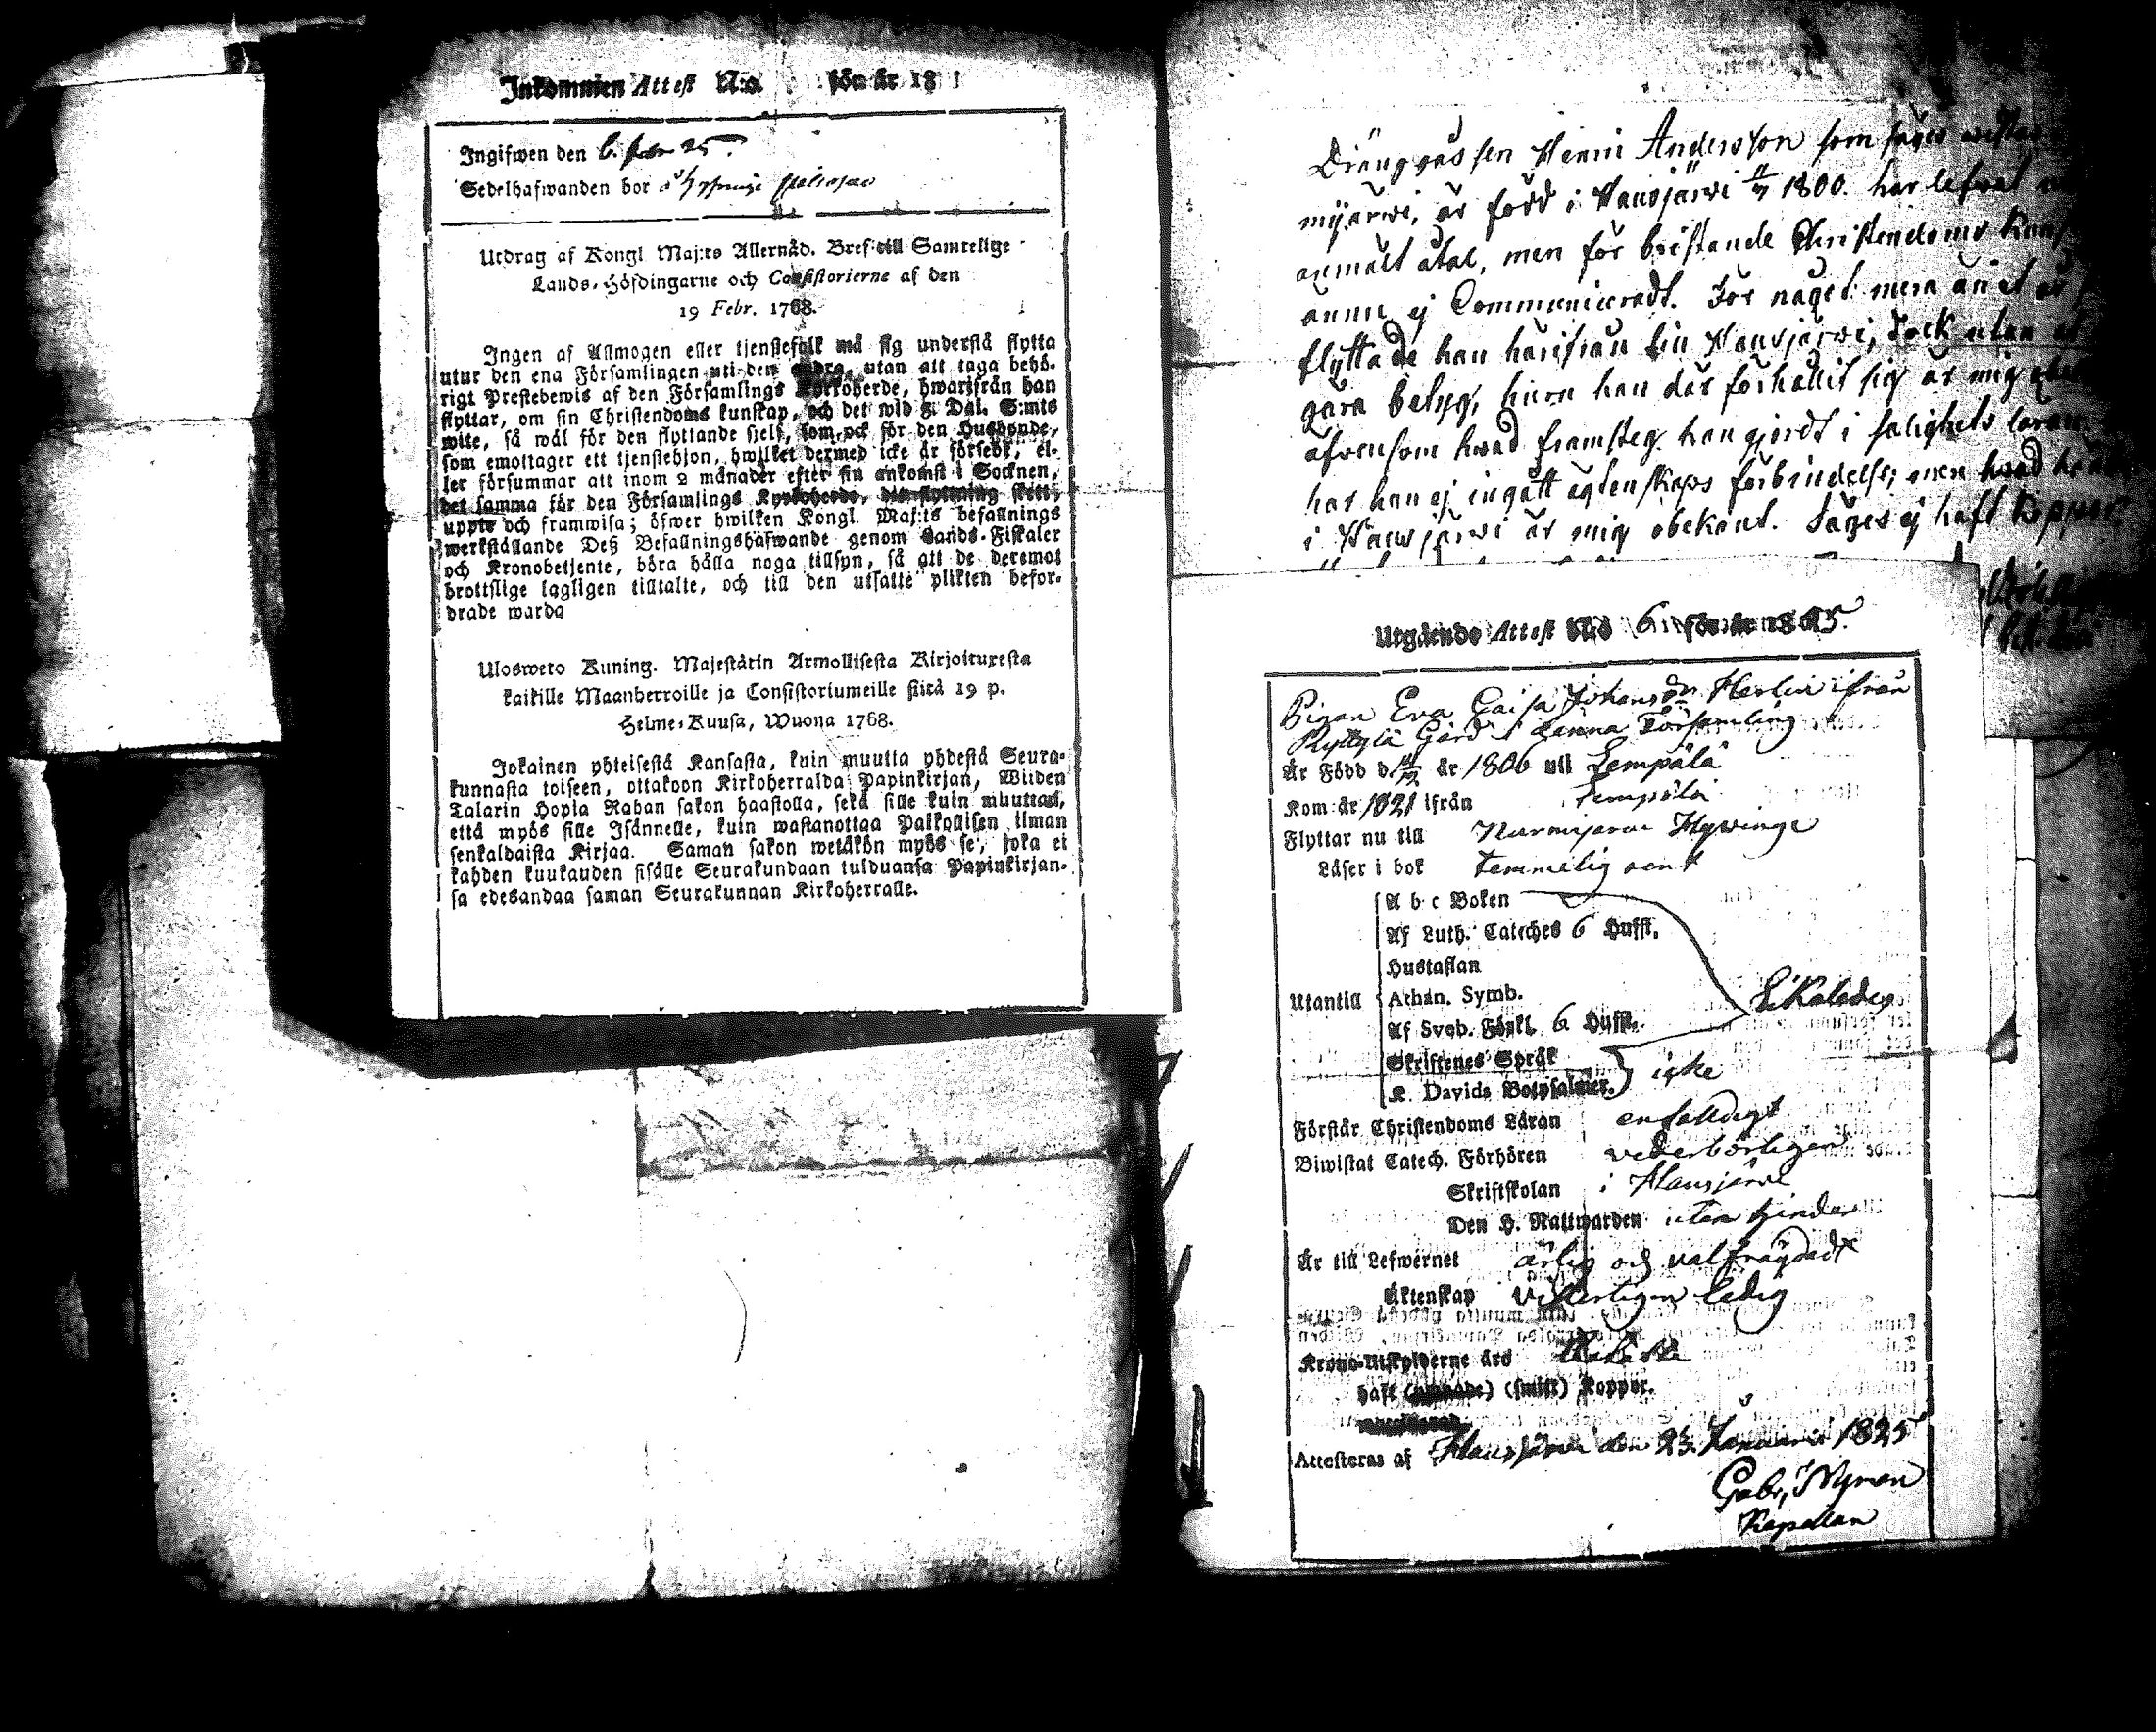 Inkommen Attest N:o för år 18
Ingifwen den 6. febr 25.
Sedelhafwanden bor
Utdrag af Kongl Maj:ts Allernåd. Bref till Samtelige
Lands-Höfdingarne och Consistorierne af den
19 Febr. 1768.
Ingen af Allmogen eller tjenstefolk må sig understå flytta
utur den ena Församlingen uti den andra, utan att taga behö-
rigt Prestebewis af den Församlings Kyrkoherde, hwarifrån han
flyttar, om sin Christendoms kunskap, och det wid 5. Dal. S:mts
wite, så wäl för den flyttande sjelf, som ock för den Husbonde,
som emottager ett tjenstehjon, hwilket dermed icke är försedt, el-
ler försummar att inom 2 månader efter sin ankomst i Socknen,
det samma för den Församlings Kyrkoherde, dit flyttning skett,
uppte och framwisa; öfwer hwilken Kongl. Maj:ts befallnings
werkställande Deß Befallningshafwande genom Lands-Fiskaler
och Kronobetjente, böra hålla noga tillsyn, så att de deremot
brottslige lagligen tilltalte, och till den utsatte plikten befor-
drade warda
Uloswero Kuning. Majestätin Armollisesta Kirjoituxesta
kaikille Maanherroille ja Consistoriumeille siitä 19 p.
Helme-Kuusa, Wuona 1768.
Jokainen yhteisestä Kansasta, kuin muutta yhdestä Seura-
kunnasta toiseen, ottakoon Kirkoherralda Papinkirjan, Wiiden
Talarin Hopia Rahan sakon haastolla, sekä sille kuin muuttaa,
että myös sille Isännelle, kuin wastanottaa Palkollisen ilman
senkaldaista Kirjaa. Saman sakon wetäkön myös se, joka ei
kahden kuukauden sisälle Seurakundaan tulduansa Papinkirjan-
sa edesandaa saman Seurakunnan Kirkoherralle.
Drängyässen Henric Andersson som säges
mijärvi, är född i Hausjärvi 1800. har lefvat
anmält åtal, men för bristande Christendoms
ännu ej Communicerat. För något mera än et år
flyttade han härifrån till Hausjärvi, dock utan at
gära betyg, huru han där förhållit sig är mig
äfvensom hvad framsteg han gjordt i salighets läran
har han ej ingått ägtenskaps förbindelse; men hvad
i Hausjärvi är mig obekant. Säges ej haft Koppor
Utgående Attest N:o 6 för år 1825.
Pigan Eva Caisa Johansdr. Herlin ifrån
Ryttylä Gård i denna Församling
Är Född d. 14/12 år 1806 uti Lempälä
Kom år 1821 ifrån Lempälä
Flyttar nu till Nurmijärvi Hyvinge
Läser i bok temmelig rent
A b c Boken
Af Luth. Cateches 6 Hufst.
Hustaflan
Utantill Athan. Symb.
Af Sveb. Förkl. 6 Hufst.
Skriftenes Språk
K. Davids Botpsalmer. icke
Förstår Christendoms Läran enfaldigt
Biwistat Catech. Förhören vederbörligen
Skriftskolan i Hausjärvi
Den H. Nattwarden utan hinder
Är till Lefwernet ärlig och välfrägdad
Äktenskap vitterligen ledig
Krono-Utskylderne äro
haft (smitt) Koppor.
Attesteras af Hausjärvi den 23 Januarii 1825
Gabr. Nyman
Kapellan